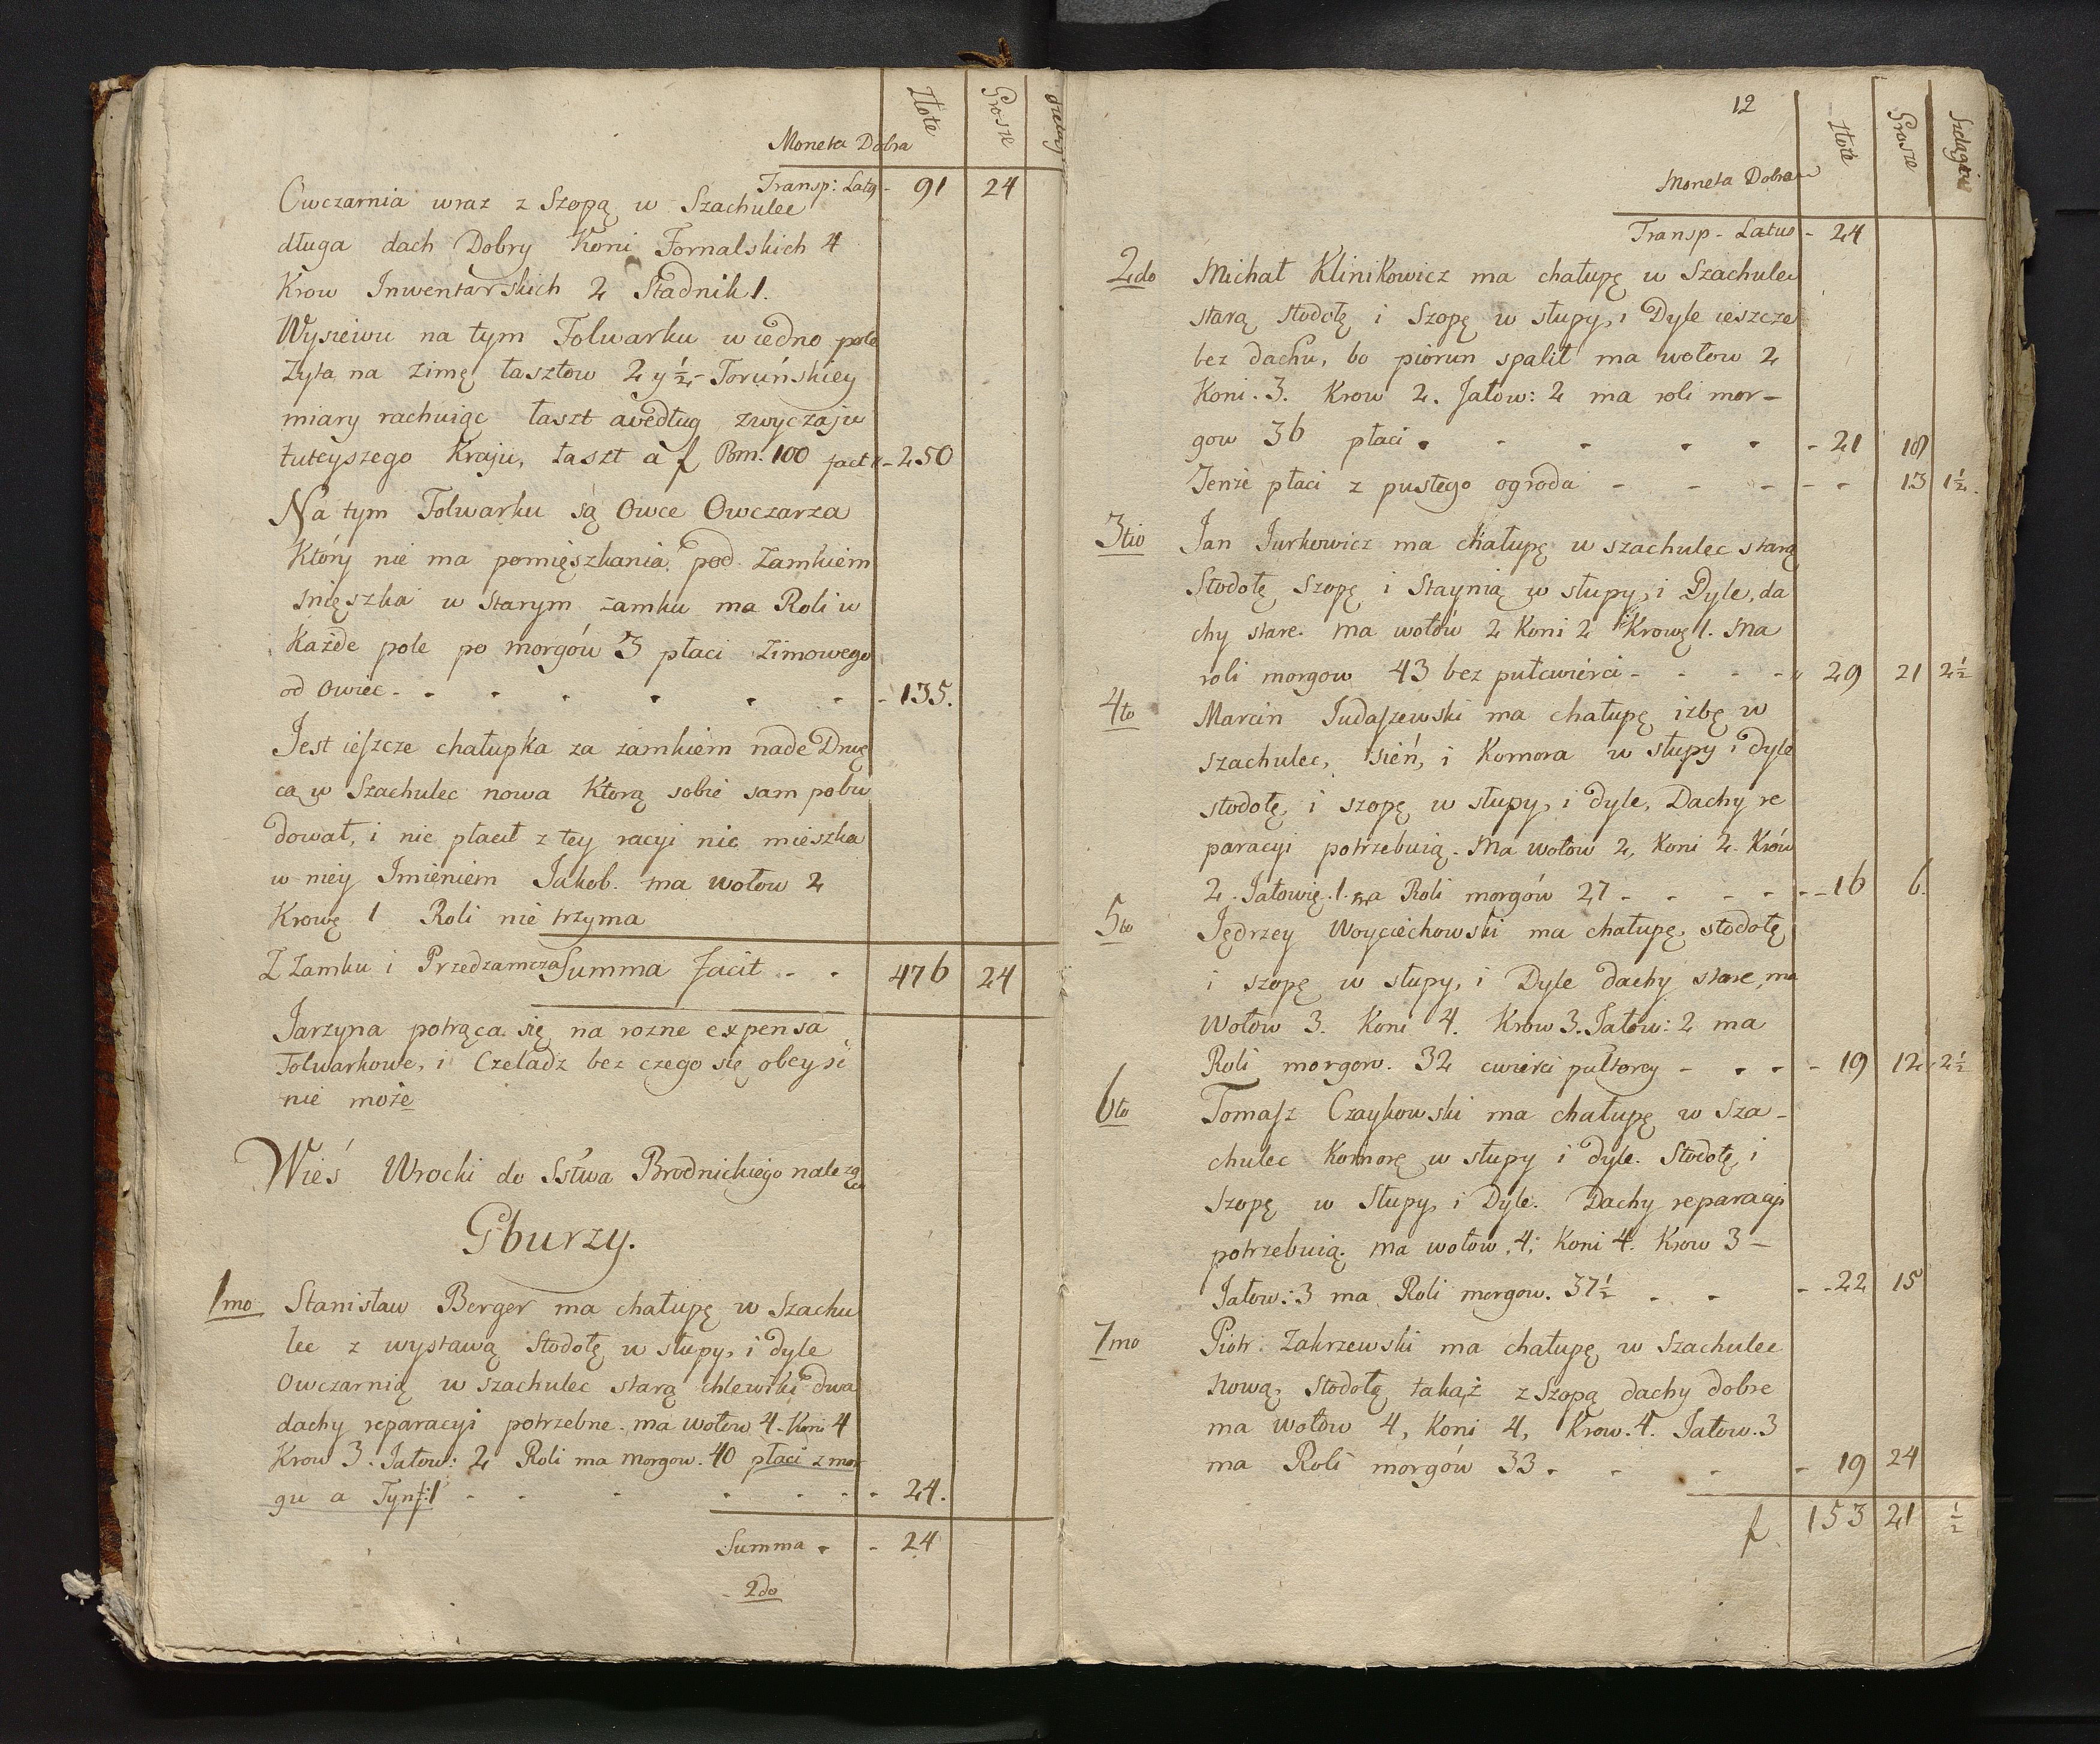 Złote Grosze Szeląg
Moneta Dobra
Transp: Latq - 91 24
Owczarnia wraz z Szopą w Szachulec
długa dach Dobry Koni Fornalskich 4
Krow Inwentarskich 2 Stadnik 1.
Wysiewu na tym Folwarku w iedno pole
Zyta na zimę łasztow 2 y ½ - Toruńskiey
miary rachuiąc łaszt według zwyczaju
tuteyszego Kraju, łaszt à f Pm. 100 facit - 250
Na tym Folwarku są Owce Owczarza
Który nie ma pomięszkania pod Zamkiem
mięszka w starym zamku ma Roli w
Każde pole po morgów 3 płaci Zimowego
od owiec - 135.
Jest ieszcze chałupka za zamkiem nade Drwę
cą w Szachulec nowa Którą sobie sam pobu
dował, i nie płacił z tey racyi nie mieszka
w niey Imieniem Jakob. ma wołow 2
Krowę 1 Roli nie trzyma
Z Zamku i Przedzamcza Summa facit - 476 24
Jarzyna potrąca się na rozne expensa
Folwarkowe, i Czeladz bez czego się obeyść
nie może
Wieś Wrocki do Sstwa Brodnickiego należąca
Gburzy.
1mo Stanisław Berger ma chałupę w Szachu
lec z wystawą Stodołę w słupy, i dyle
Owczarnią w szachulec starą chlewiki dwa
dachy reparacyi potrzebne. ma wołow 4. Koni 4
Krow 3. Jałow: 2 Roli ma morgow. 40 płaci z mor
gu a Tynf: 1 - 24.
Summa - 24
2do
12
Złote Grosze Szelągow
Moneta Dobra
Transp - Latus - 24
2do Michał Klinikowicz ma chałupę w Szachulec
starą stodołę i Szopę w słupy, i Dyle ieszcze
bez dachu, bo piorun spalił ma wołow 2
Koni. 3. Krow 2. Jałow: 2 ma roli mor-
gow 36 płaci - 21 18
Tenże płaci z pustego ogroda - 13 1½.
3tio Jan Jurkowicz ma chałupę w szachulec starą
Stodołę Szopę i Staynią w słupy, i Dyle, da
chy stare. ma wołów 2 Koni 2 Krowę 1. Ma
roli morgow 43 bez pułcwierci - 29 21 2½
4to Marcin Judaszewski ma chałupę izbę w
szachulec, sień, i Komora w słupy i dyle
stodołę, i szopę w słupy, i dyle, Dachy re
paracyi potrzebuią. Ma wołow 2, Koni 2. Krów
2. Jałowię. 1. ma Roli morgów 27 - 16 6.
5to Jędrzey Woyciechowski ma chałupę, stodołę
i szopę w słupy, i Dyle dachy stare, ma
Wołow 3. Koni 4. Krow 3. Jałow: 2 ma
Roli morgow. 32 cwierci pułtorey - 19 12 2½
6to Tomasz Czaykowski ma chałupę w Sza-
chulec Komorę w słupy i dyle. Stodołę, i
Szopę w Słupy, i Dyle. Dachy reparacyi
potrzebuią. ma wołow, 4; Koni 4. Krow 3 -
Jałow: 3 ma Roli morgow. 37½ - 22 15
7mo Piotr Zakrzewski ma chałupę w Szachulec
nową, Stodołę takąż z Szopą dachy dobre
ma wołow 4, Koni 4, Krow. 4. Jałow. 3
ma Roli morgów 33 - 19 24
f 153 21 ½